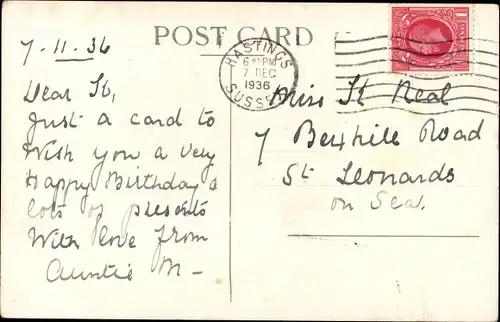 POST CARD
7-11-36
Dear St,
Just a card to
Wish you a very
Happy Birthday &
lots of presents
With love from
Auntie M-
HASTINGS
SUSSEX
6 15 PM
7 DEC
1936
1
Miss St Neal
7 Bexhill Road
St Leonards
on Sea.